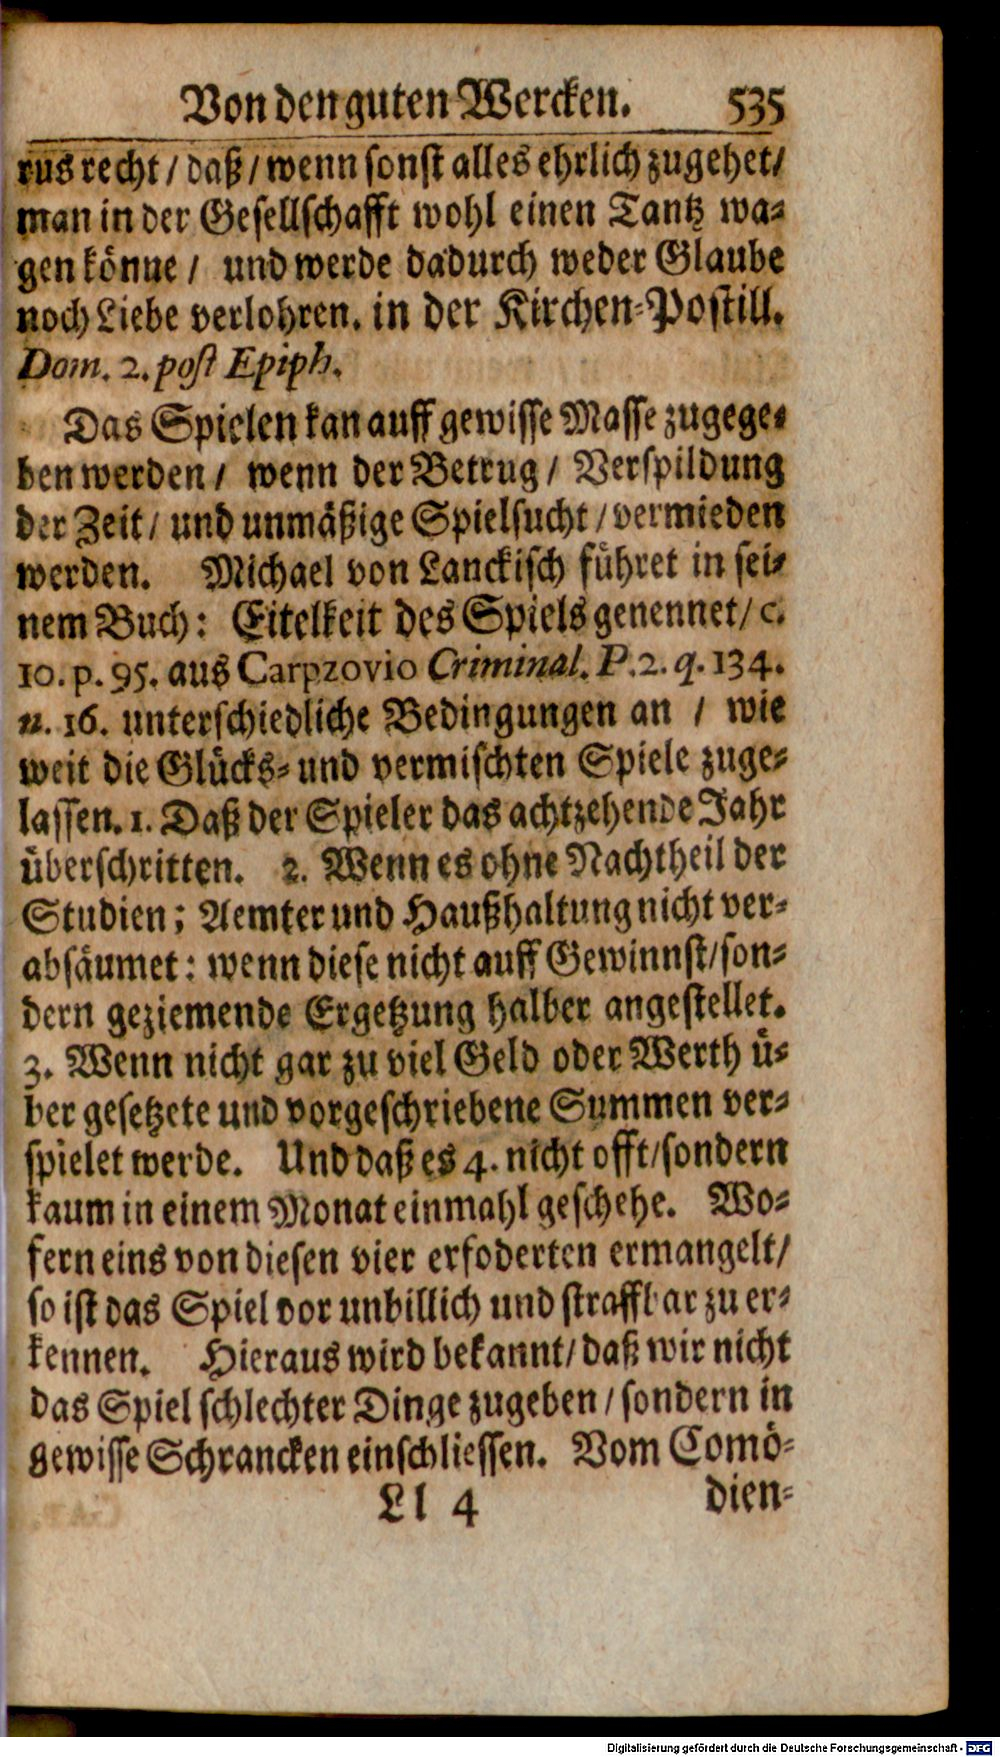 Von den guten Wercken. 535
rus recht / daß / wenn sonst alles ehrlich zugehet /
man in der Gesellschafft wohl einen Tantz wa-
gen könne / und werde dadurch weder Glaube
noch Liebe verlohren. in der Kirchen-Postill.
Dom. 2. post Epiph.
Das Spielen kan auff gewisse Masse zugege-
ben werden / wenn der Betrug / Verspildung
der Zeit / und unmäßige Spielsucht / vermieden
werden. Michael von Lanckisch führet in sei-
nem Buch: Eitelkeit des Spiels genennet / c.
10. p. 95. aus Carpzovio Criminal. P. 2. q. 134.
n. 16. unterschiedliche Bedingungen an / wie
weit die Glücks- und vermischten Spiele zuge-
lassen. 1. Daß der Spieler das achtzehende Jahr
überschritten. 2. Wenn es ohne Nachtheil der
Studien; Aemter und Haußhaltung nicht ver-
absäumet: wenn diese nicht auff Gewinnst / son-
dern geziemende Ergetzung halber angestellet.
3. Wenn nicht gar zu viel Geld oder Werth ü-
ber gesetzete und vorgeschriebene Summen ver-
spielet werde. Und daß es 4. nicht offt / sondern
kaum in einem Monat einmahl geschehe. Wo-
fern eins von diesen vier erfoderten ermangelt /
so ist das Spiel vor unbillich und straffbar zu er-
kennen. Hieraus wird bekannt / daß wir nicht
das Spiel schlechter Dinge zugeben / sondern in
gewisse Schrancken einschliessen. Vom Comö-
Ll 4 dien-
Digitalisierung gefördert durch die Deutsche Forschungsgemeinschaft - DFG